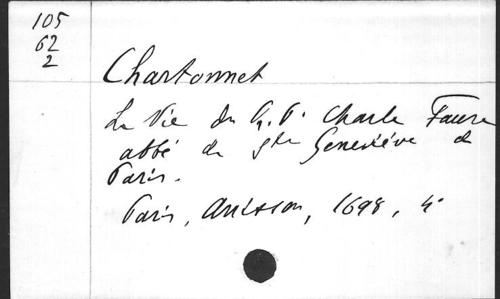 105
62
2
Chartonnet
La Vie du R. P. Charle Faure
abbé de Ste Geneviève de
Paris.
Paris, Anisson, 1698, 4°